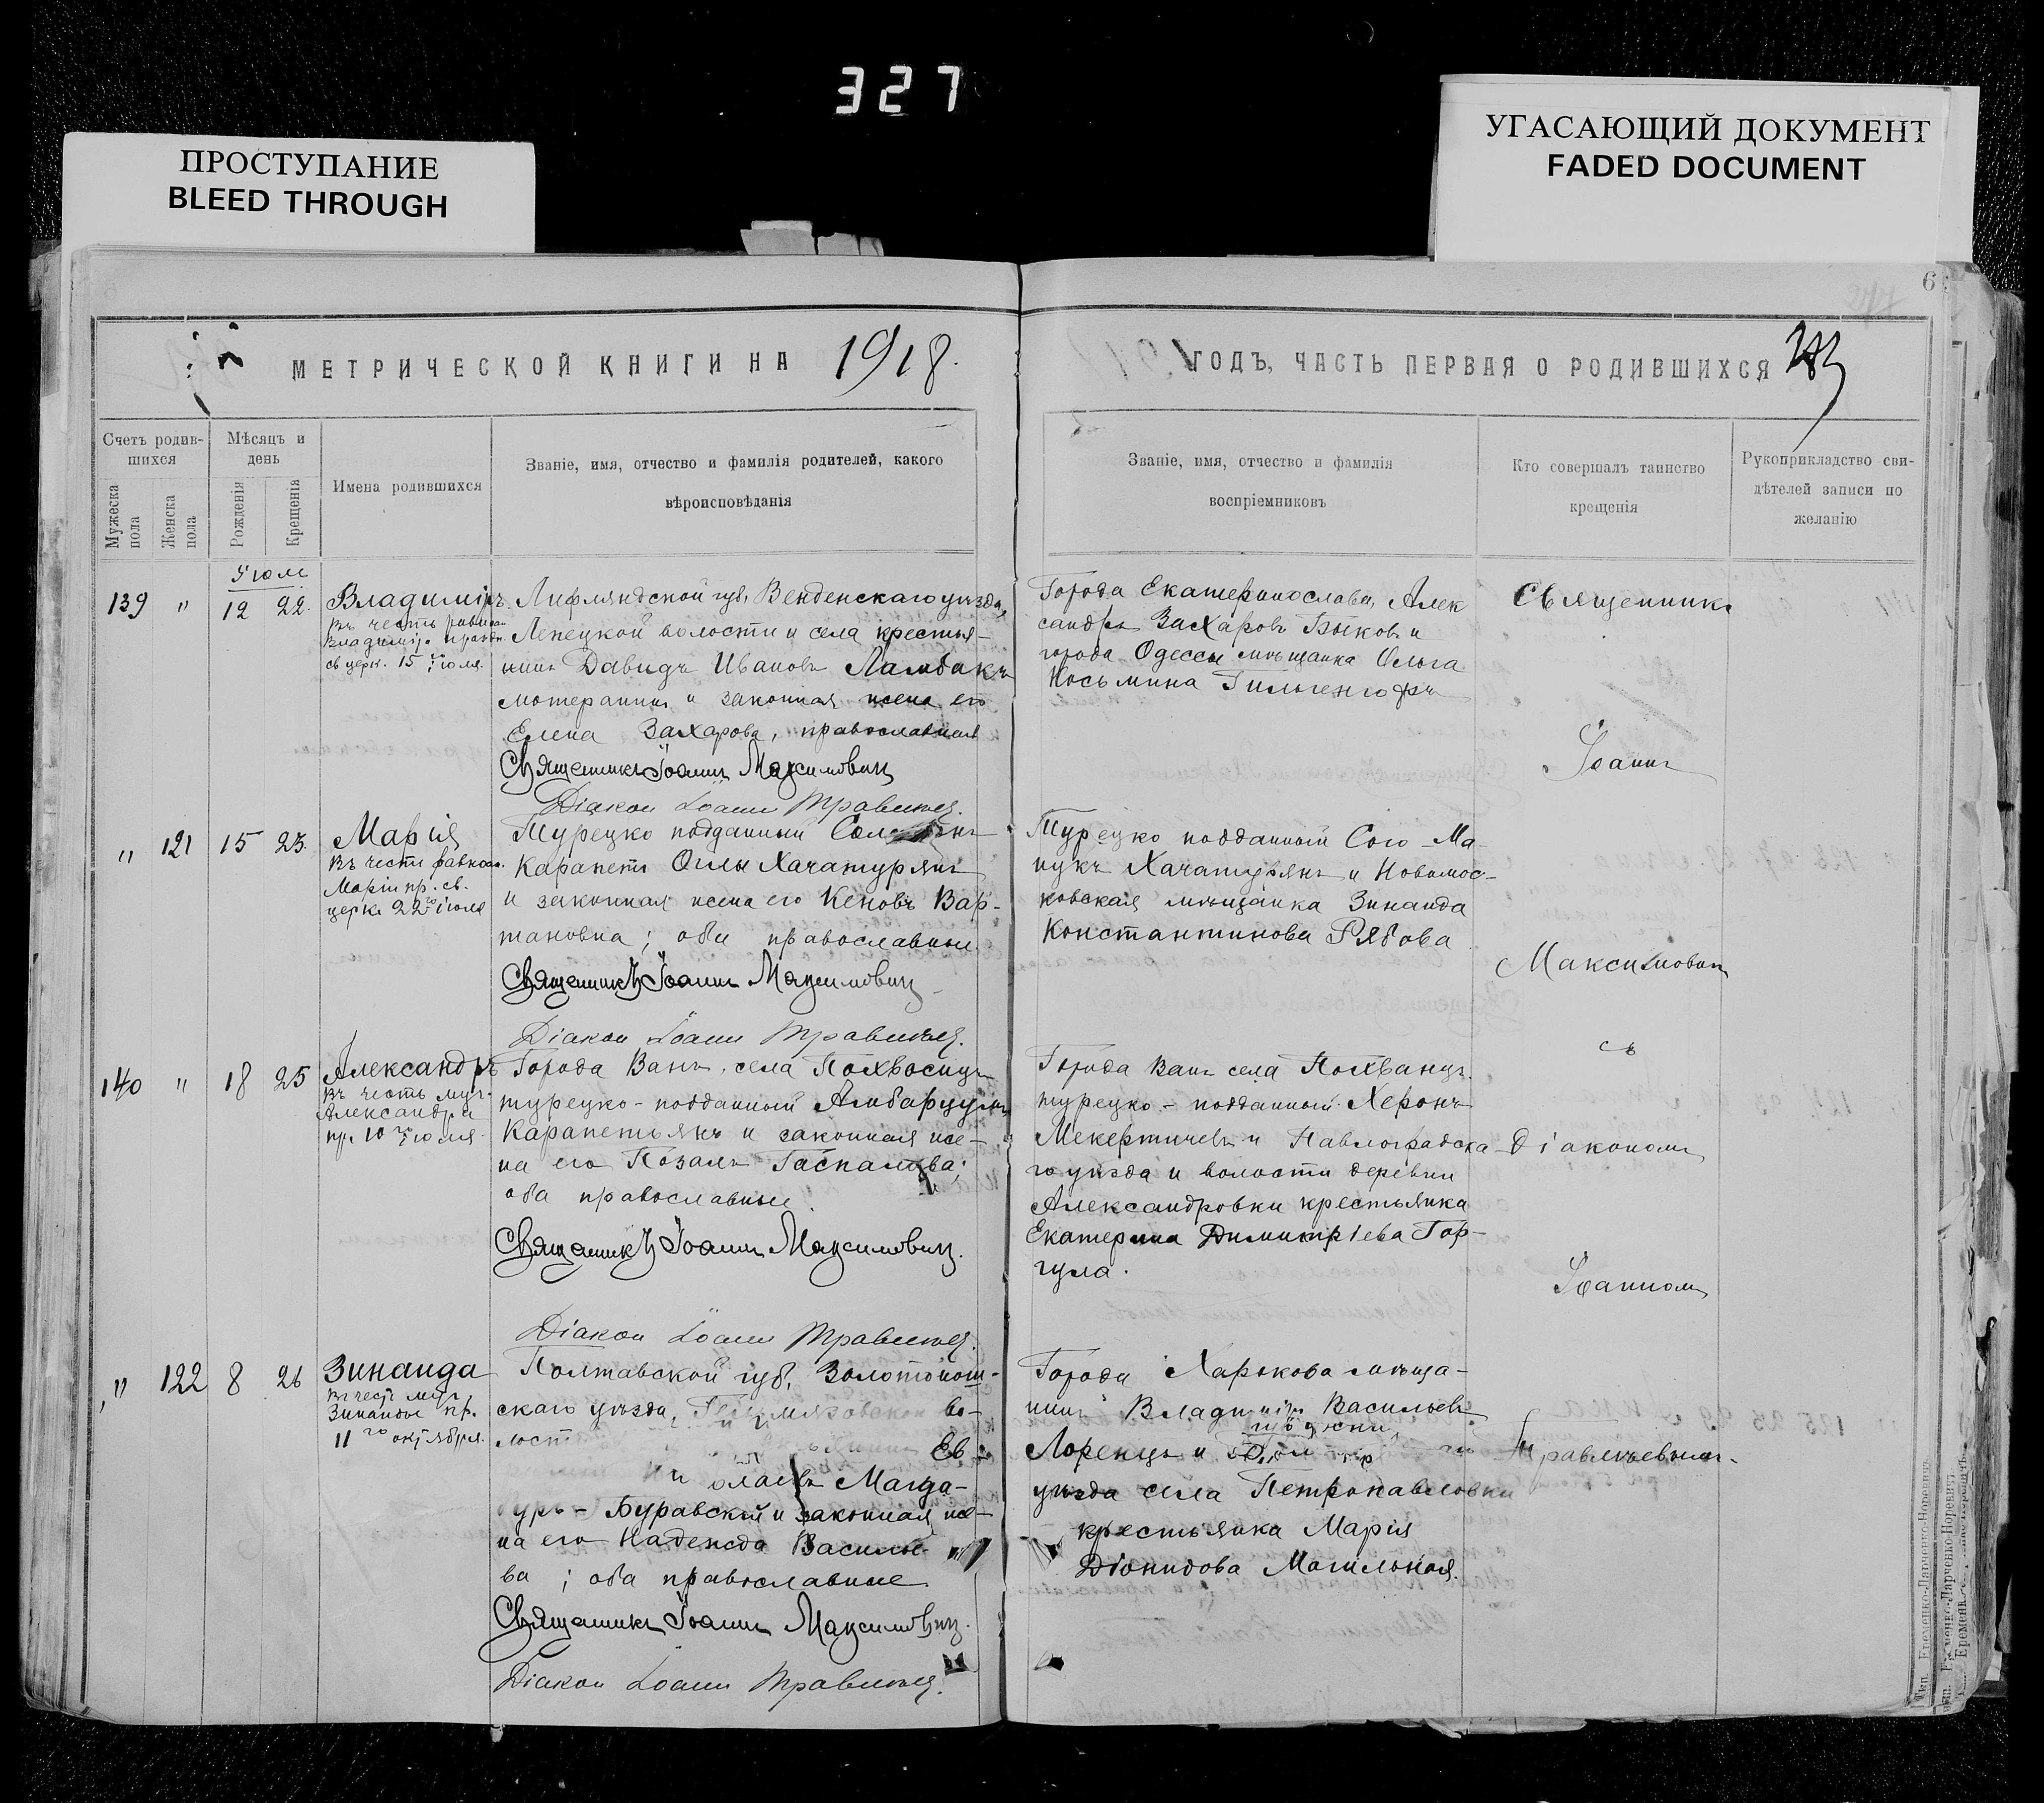 327
ПРОСТУПАНИЕ
BLEED THROUGH
УГАСАЮЩИЙ ДОКУМЕНТ
FADED DOCUMENT
6
МЕТРИЧЕСКОЙ КНИГИ НА 1918.
ГОДЪ, ЧАСТЬ ПЕРВАЯ О РОДИВШИХСЯ
Счетъ родив-
шихся
Мужеска
пола
Женска
пола
Мѣсяцъ и
день
Рожденія
Крещенія
Имена родившихся
Званіе, имя, отчество и фамилія родителей, какого
вѣроисповѣданія
Званіе, имя, отчество и фамилія
воспріемниковъ
Кто совершалъ таинство
крещенія
Рукоприкладство сви-
дѣтелей записи по
желанію
139 " 12 22.
Владиміръ.
Въ честь
Владиміра
св церк. 15 іюля.
Лифляндской губ, Венденскаго уѣзда,
волости и села крестья-
нинъ Давидъ Ивановъ Ламбакъ
и законная жена его
Елена Захарова, православная
Священникъ Іоаннъ Максимовичъ
Діакон Іоанн
Города Екатеринослава, Алек
сандръ Захаровъ Быковъ и
города Одессы мѣщанка Ольга
Косьмина
Священникъ
Іоаннъ
" 121 15 23.
Марія
Въ честь равноап.
Маріи пр. св.
церк. 22го іюля
Турецко подданный
Карапетъ Оглы Хачатурянъ
и законная жена его Кеновъ Вар-
тановна; оба православные
Священникъ Іоаннъ Максимовичъ
Діакон Іоанн
Турецко подданный Сого-Ма-
нукъ Хачатурянъ и Новомос-
ковская мѣщанка Зинаида
Константинова Рябова
Максимовичъ
съ
140 " 18 25
Александръ
Въ честь муч.
Александра
пр. 10го іюля
Города Ванъ, села
турецко-подданный Амбарцумъ
Карапетьянъ и законная же-
на его
оба православные.
Священникъ Іоаннъ Максимовичъ.
Діакон Іоанн
Города Ванъ села
турецко-подданный Херонъ
Мекертичевъ и Павлоградска
го уѣзда и волости деревни
Александровки крестьянка
Екатерина Димитріева Гор-
гула.
Діакономъ
Іоанномъ
" 122 8 26
Зинаида
Въ честь муч,
Зинаиды пр.
11го октября.
Полтавской губ, Золотонош-
скаго уѣзда, во-
лост
Ев
Магда-
Буравскій и законная же-
на его Надежда Василье-
ва; оба православные
Священникъ Іоаннъ Максимовичъ.
Діакон Іоанн
Города Харькова мѣща-
нинъ Владиміръ Васильевъ
Лоренцъ и
уѣзда села Петропавловки
крестьянка Марія
Могильная.